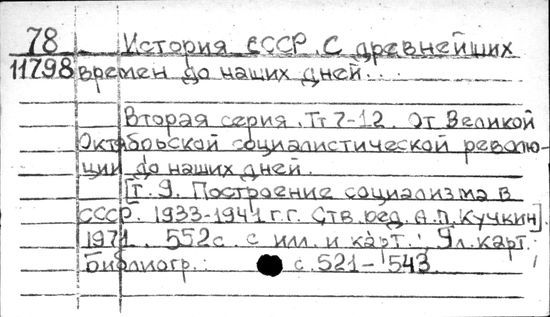 78 История СССР. С древнейших
11798 времен до наших дней...
Вторая серия. Тт 7-12. От Великой
Октябрьской социалистической револю-
ции до наших дней.
[т. 9. Построение социализма в
СССР. 1933-1941 г.г. Отв. ред. А.П. Кучкин].
1971. 552 с. с илл. и карт.; 9 л. карт.
Библиогр.: с. 521-543.